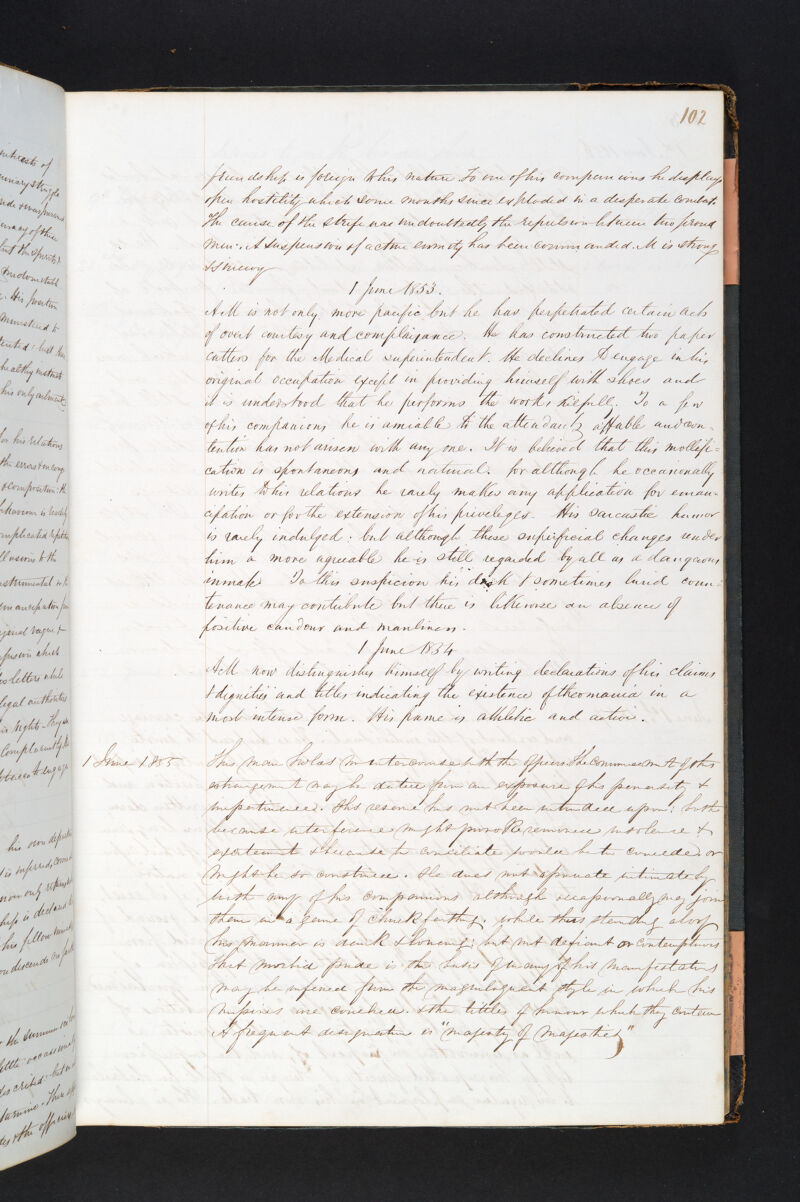 102
friendship is foreign to his nature. To one of his companions he displays
open hostility which some months since exploded in a desperate combat.
The cause of the strife was undoubtedly the repulsion between two proud
men. A suspension of active enmity has been commanded. M is strong
& sinewy
1 June 1853.
AM is not only more pacific but he has perpetrated certain acts
of overt courtesy and complaisance. He has constructed two paper
cutters for the Medical Superintendent. He declines to engage in his
original occupation except in providing himself with shoes and
it is understood that he performs the work skilfully. To a few
of his companions he is amiable to the attendants affable and con-
tention has not arisen with any one. It is believed that this mollifi-
cation is spontaneous and natural: for although he occasionally
writes to his relations he rarely makes any application for eman-
cipation or for the extension of his privileges. His sarcastic humor
is rarely indulged: but although these superficial changes render
him a more agreeable he is still regarded by all as a dangerous
inmate To this suspicion his dark & sometimes lurid coun-
tenance may contribute but there is likewise an absence of
positive candour and manliness.
1 June 1854
AM now distinguishes himself by writing declarations of his claims
& dignities and titles indicating the existence of theomania in a
most intense form. His frame is athletic and active.
1 June 1855
This man holds no intercourse with the Officers. The commencement of this
estrangement may be dated from an exposure of his &
impertinence. This reserve has not been intruded upon: both
because interference might provoke renewed insolence &
excitement & because to conciliate would be to concede or
might be so construed. He does not associate intimately
with any of his companions although occasionally may join
them in a game of chuck farthing. While thus standing aloof
his manner is dark & but not defiant or contemptuous
That morbid pride is the basis of many of his manifestations
may be inferred from the magniloquent style in which his
missives are couched & the titles of honour which they contain
A frequent designation is "Majesty of Majesties"
interests of
his only ailment
for his relations
& composition: the
illusions to the
legal authorities
his own
is declared
his fellow
& the officers